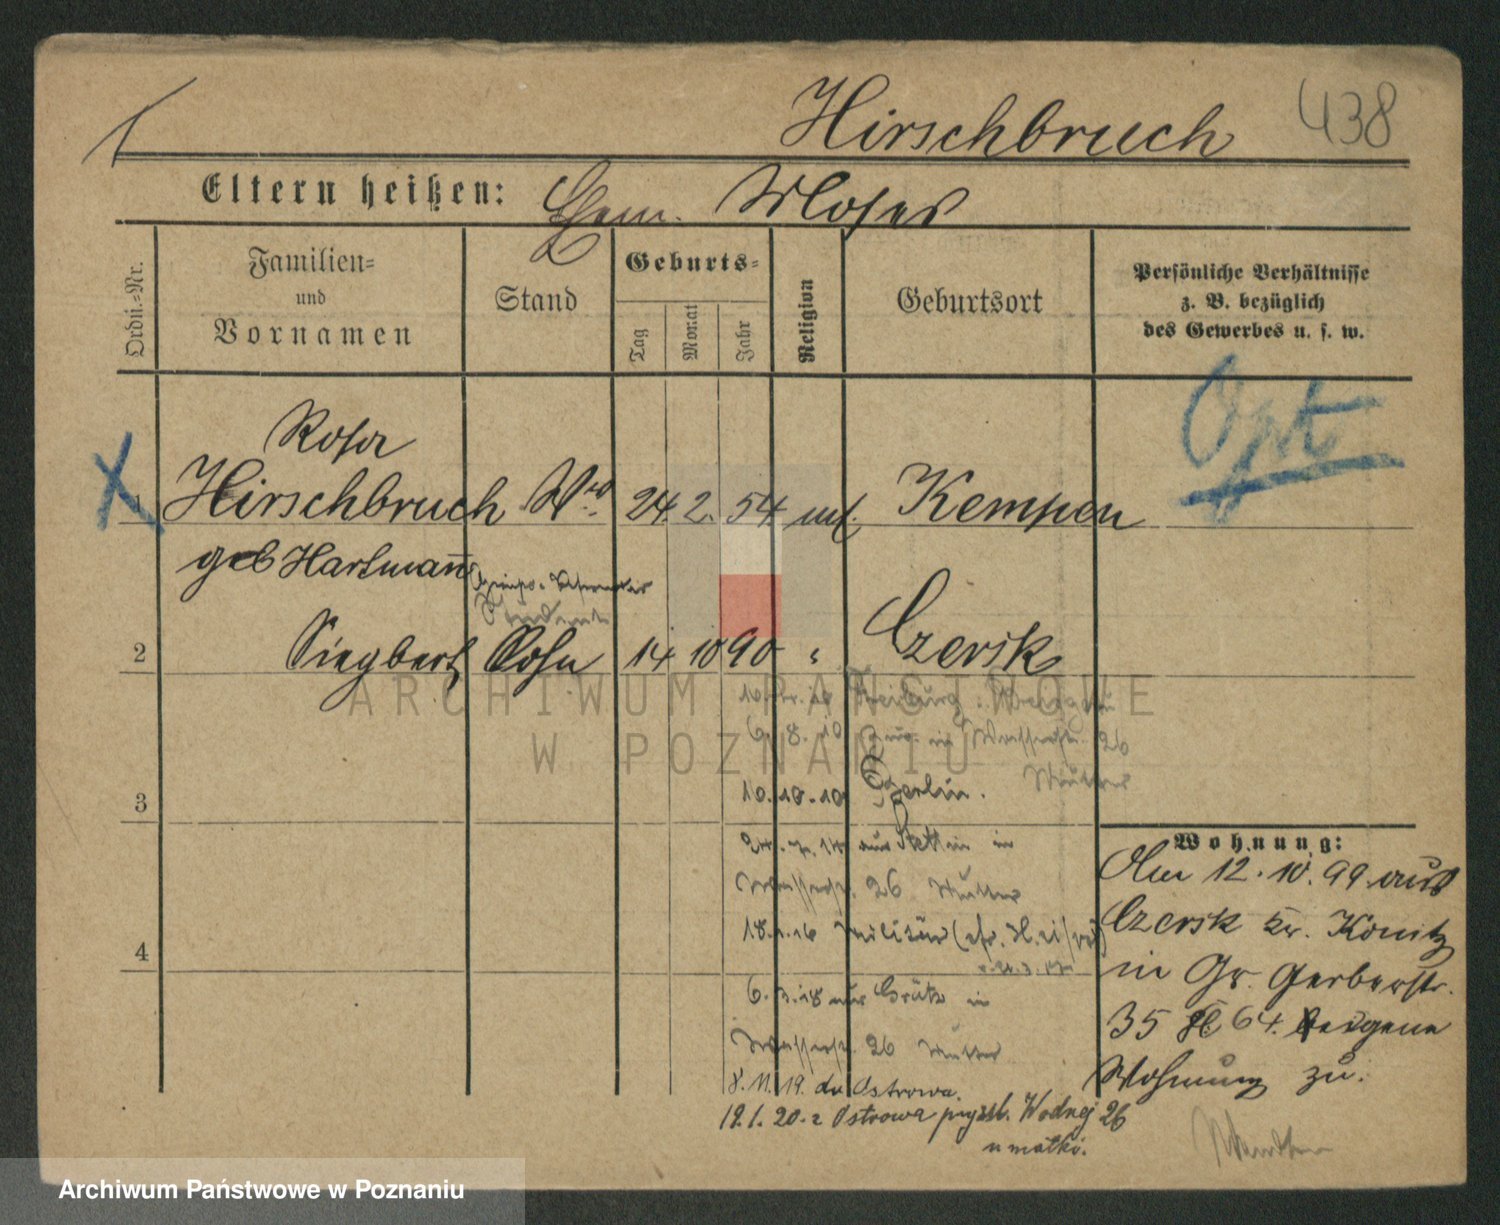 Hirschbruch 438
Eltern heißen: Ehem. Moses
Ordn.=Nr.
Familien=
und
Vornamen
Stand
Geburts=
Tag
Monat
Jahr
Religion
Geburtsort
Persönliche Verhältnisse
z. B. bezüglich
des Gewerbes u. s. w.
Opt
Rosa
1 Hirschbruch Wwe 24 2. 54 mos. Kempen
geb Hartmann
Student
2 Siegbert Sohn 14 10 90 " Czersk
Freiburg
6. 8. 10 in Wasserstr. 26
Mutter
3 10.10.10 Berlin.
24.7.14 aus Stettin in
Wasserstr. 26 Mutter
4 Militär
6.3.18 aus in
Wasserstr. 26 Mutter
8.11.19. do Ostrowa.
12.1.20. z Ostrowa Wodnej 26
u matki.
Wohnung:
Am 12.10.99 aus
Czersk Kr. Konitz
in Gr. Gerberstr.
35 64. eigene
Wohnung zu.
ARCHIWUM PAŃSTWOWE
W POZNANIU
Archiwum Państwowe w Poznaniu